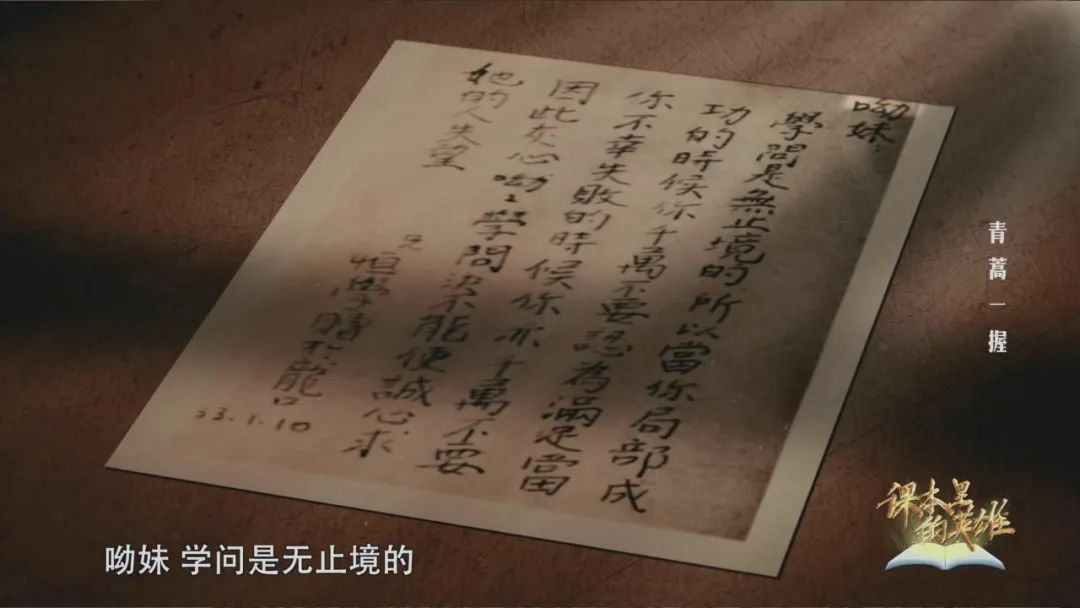 呦妹：
學問是無止境的所以當你局部成
功的時候你千萬不要認為滿足當
你不幸失敗的時候你亦千萬不要
因此灰心呦〻學問決不能使誠心求
她的人失望
兄
恒學贈於龍口
53.1.10
青蒿一握
课本里
的英雄
呦妹 学问是无止境的